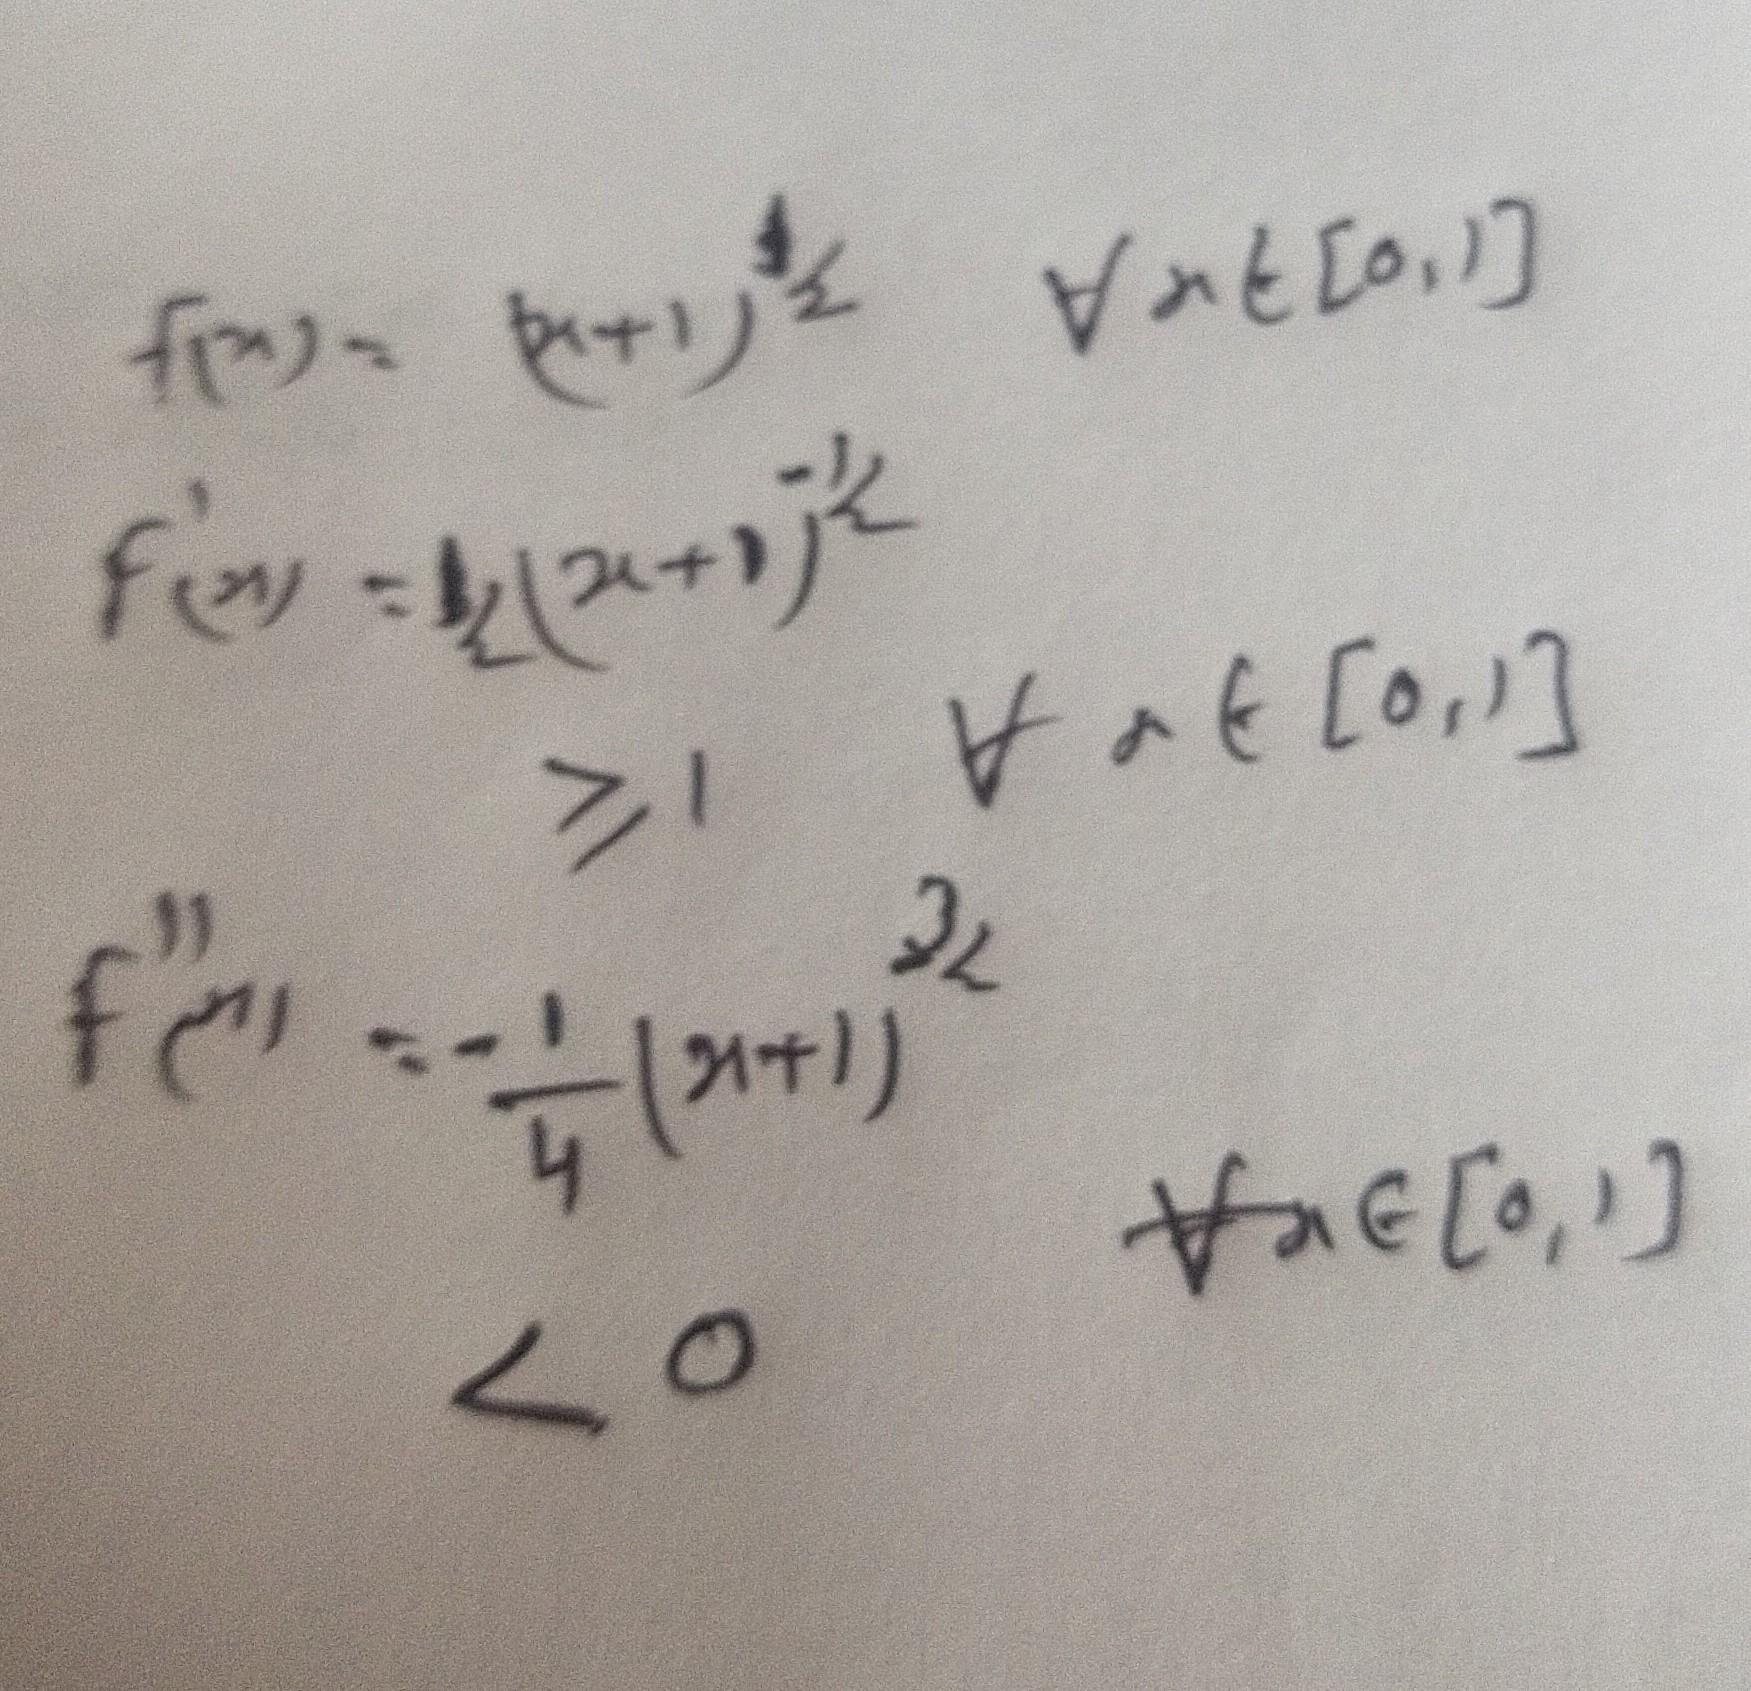 f(x) = (x+1)^1/2 ∀ x ∈ [0,1]
f'(x) = 1/2 (x+1)^-1/2
≥ 1 ∀ x ∈ [0,1]
f''(x) = -1/4 (x+1)^3/2
∀ x ∈ [0,1]
< 0